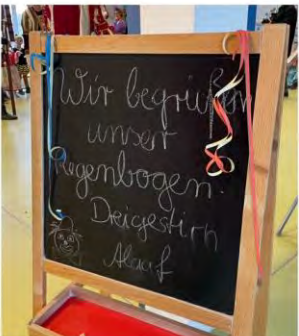 Wir begrüßen
unser
Regenbogen.
Dreigestirn
Alaaf